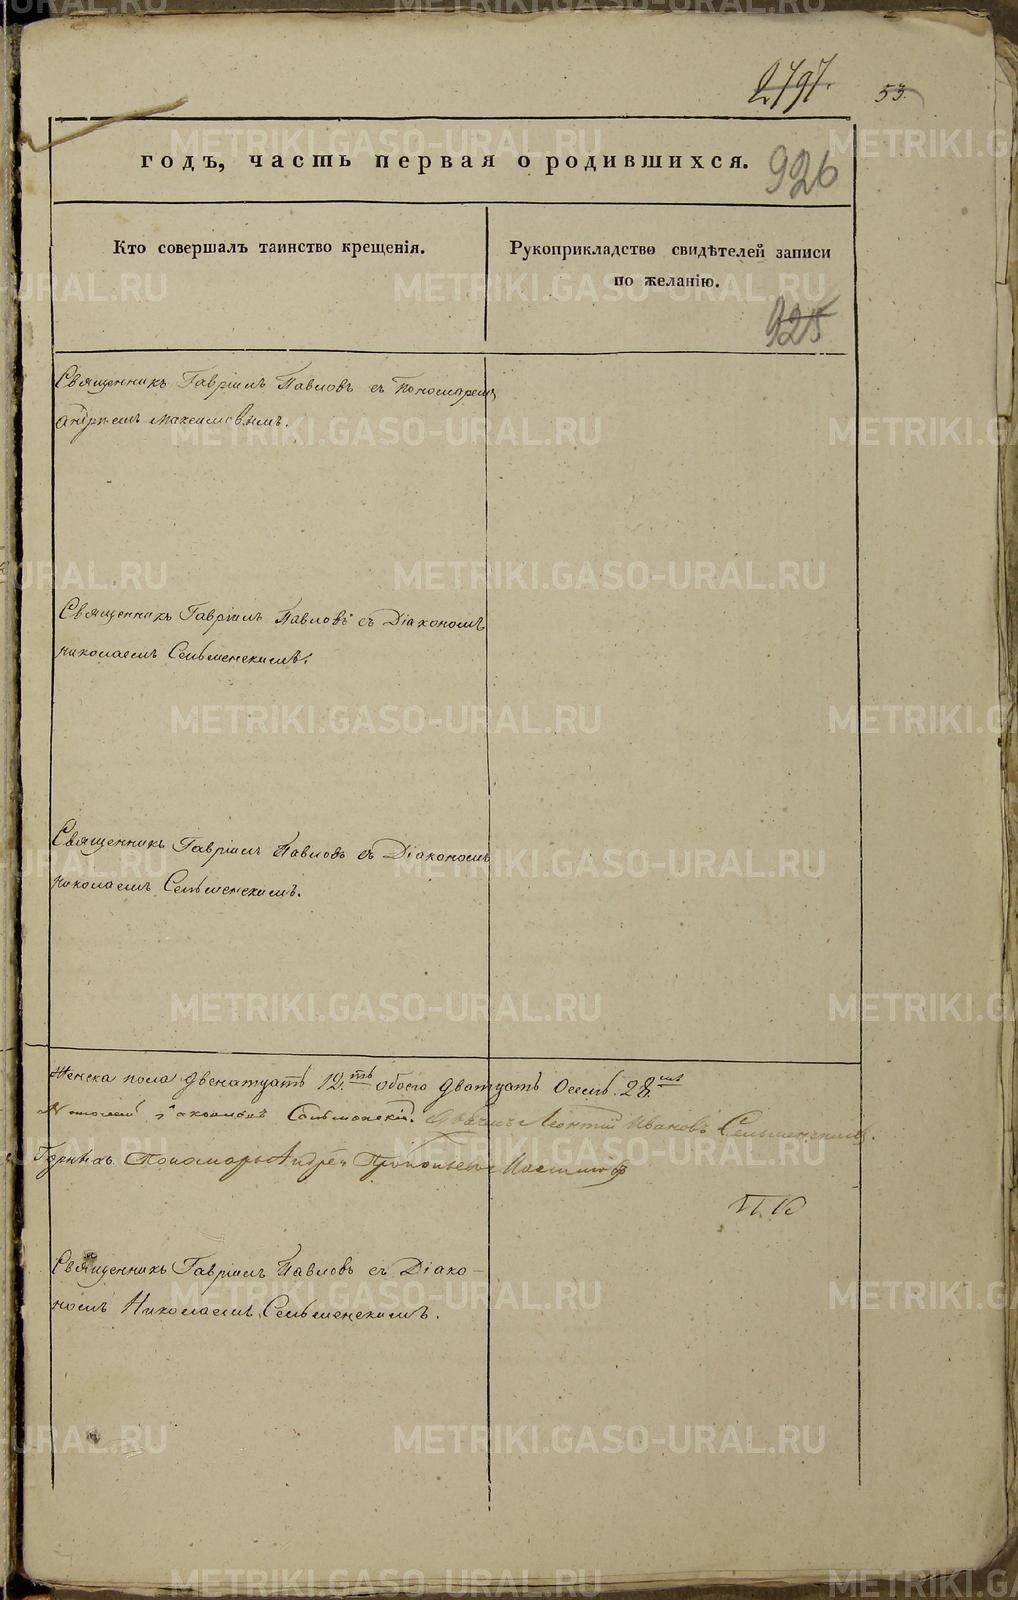 2797. 53.
годъ, часть первая о родившихся. 926
Кто совершалъ таинство крещенія.
Рукоприкладство свидѣтелей записи
по желанію.
925
Священникъ Гавріилъ Павловъ съ Пономаремъ
Андреемъ Максимовымъ.
Священникъ Гавріилъ Павловъ съ Діакономъ
Николаемъ Сельменскимъ.
Священникъ Гавріилъ Павловъ съ Діакономъ
Николаемъ Сельменскимъ.
Женска пола двенатцать 12. обоего дватцать Осемь. 28.
Дьячекъ Леонтій Ивановъ Сельменскій.
Пономарь Андрей
Священникъ Гавріилъ Павловъ съ Діако-
номъ Николаемъ Сельменскимъ.
METRIKI.GASO-URAL.RU